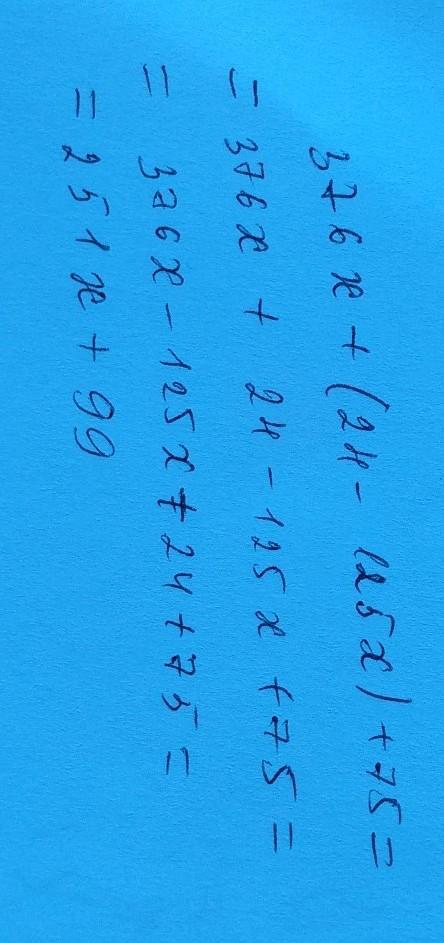 376x + (24 - 125x) + 75 =
= 376x + 24 - 125x + 75 =
= 376x - 125x + 24 + 75 =
= 251x + 99